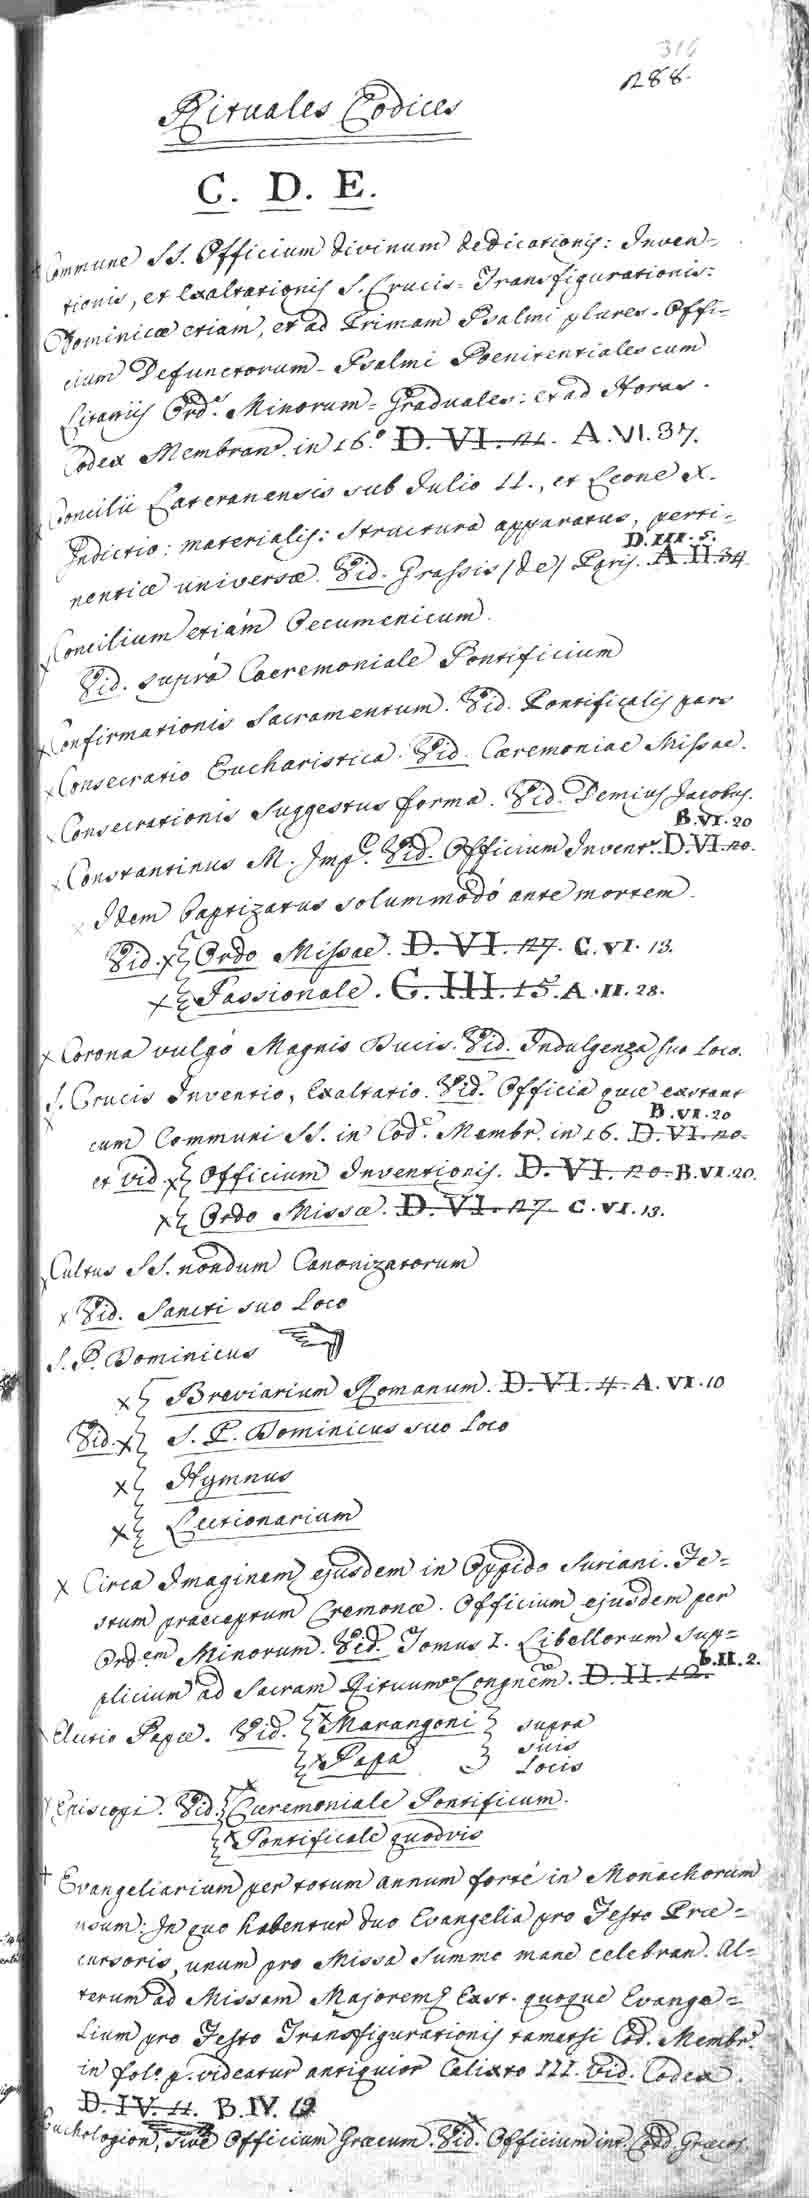 316
288.
Rituales Codices
C. D. E.
+ Commune SS. Officium divinum dedicationis: Inven=
tionis, et Exaltationis S. Crucis= Transfigurationis=
Dominicæ etiám, et ad Primam Psalmi plures. Offi=
cium Defunctorum= Psalmi Poenitentiales cum
Litaniis Ord.s Minorum= Graduales: et ad Horas.
Codex Membran. in 16.º D. VI. 21. A. VI. 37.
x Concilii Lateranensis sub Julio II., et Leone X.
Indictio: materialis: structura apparatus, perti=
D. III. 5.
nentiæ universæ. Vid. Grassis (de) Paris. A II. 34
x Concilium etiám Oecumenicum.
Vid. suprá Cæremoniale Pontificium
x Confirmationis Sacramentum. Vid. Pontificalis pars
x Consecratio Eucharistica. Vid. Cæremoniae Missae.
x Consecrationis suggestus forma. Vid. Demius Jacobus.
B. VI. 20
x Constantinus M. Imp.r Vid. Officium Invent. D. VI. 20.
x Idem baptizatus solummodó ante mortem.
Vid. x Ordo Missae. D. VI. 27. C. VI. 13.
x Passionale. C. III. 15. A. II. 28.
x Corona vulgó Magnis Ducis. Vid. Indulgenza suo Loco.
x S. Crucis Inventio, Exaltatio. Vid. Officia quæ extant
B. VI. 20
cum Communi SS. in Cod.e Membr. in 16. D. VI. 20.
et vid. x Officium Inventionis. D. VI. 20. B. VI. 20.
x Ordo Missæ. D. VI. 27. C. VI. 13.
x Cultus SS. nondum Canonizatorum
x Vid. Sancti suo Loco
S. P. Dominicus
x Breviarium Romanum. D. VI. 4. A. VI. 10
Vid. x S. P. Dominicus suo Loco
x Hymnus
x Lectionarium
x Circa Imaginem ejusdem in Oppido Suriani. Fe=
stum præceptum Cremonæ. Officium ejusdem per
Ord.em Minorum. Vid. Tomus I. Libellorum sup=
b. II. 2.
plicium ad Sacram Rituum Congnem. D. II. 12.
x Electio Papæ. Vid. x Marangoni supra
x Papa suis
Locis
x Episcopi. Vid. x Cæremoniale Pontificum.
x Pontificale quodvis
+ Evangeliarium per totum annum forté in Monachorum
usum: In quo habentur duo Evangelia pro Festo Præ=
cursoris, unum pro Missa summo mane celebran. Al=
terum ad Missam Majorem. Exst. quoque Evange=
lium pro Festo Transfigurationis tametsi Cod. Membr.
in fol. p. videatur antiquior Calixto III. Vid. Codex.
D. IV. 11. B. IV. 19
Euchologion, sive Officium Græcum. Vid. Officium int. Codd. Græcos.